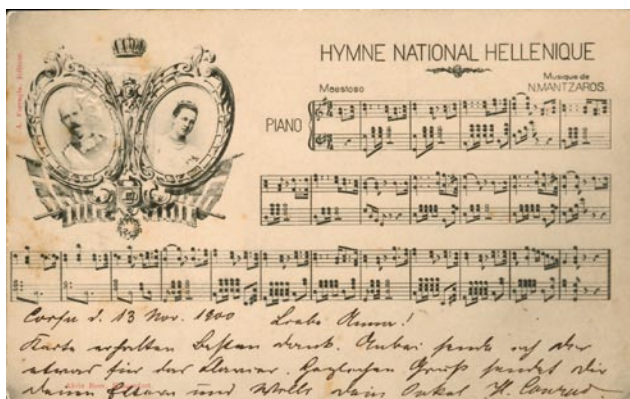 HYMNE NATIONAL HELLENIQUE
Maestoso
Musique de
N.MANTZAROS.
PIANO
Corfu d. 13 Nov. 1900 Liebe Anna!
Karte erhalten besten dank. Anbei sende ich dir
etwas für das Klavier. Herzlichen Gruß sendet dir
deinen Eltern und Wolls dein Onkel H. Conrad